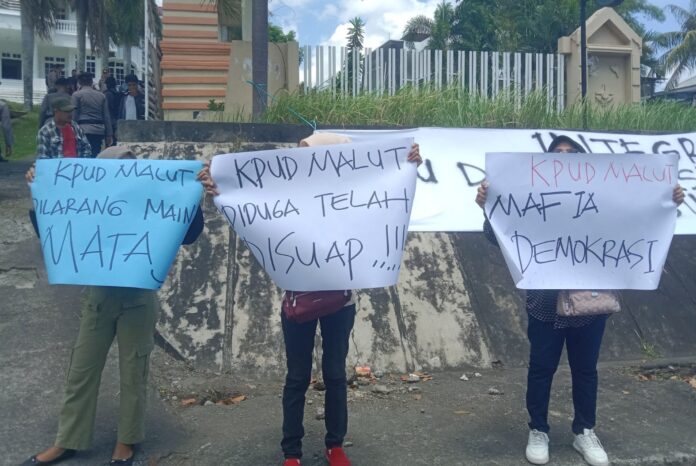 KPUD MALUT
DILARANG MAIN
MATA
KPUD MALUT
DIDUGA TELAH
DISUAP...!!!
KPUD MALUT
MAFIA
DEMOKRASI
INTEGR